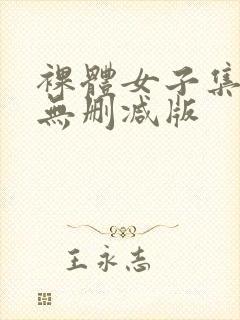 裸體女子集
無刪减版
王永志